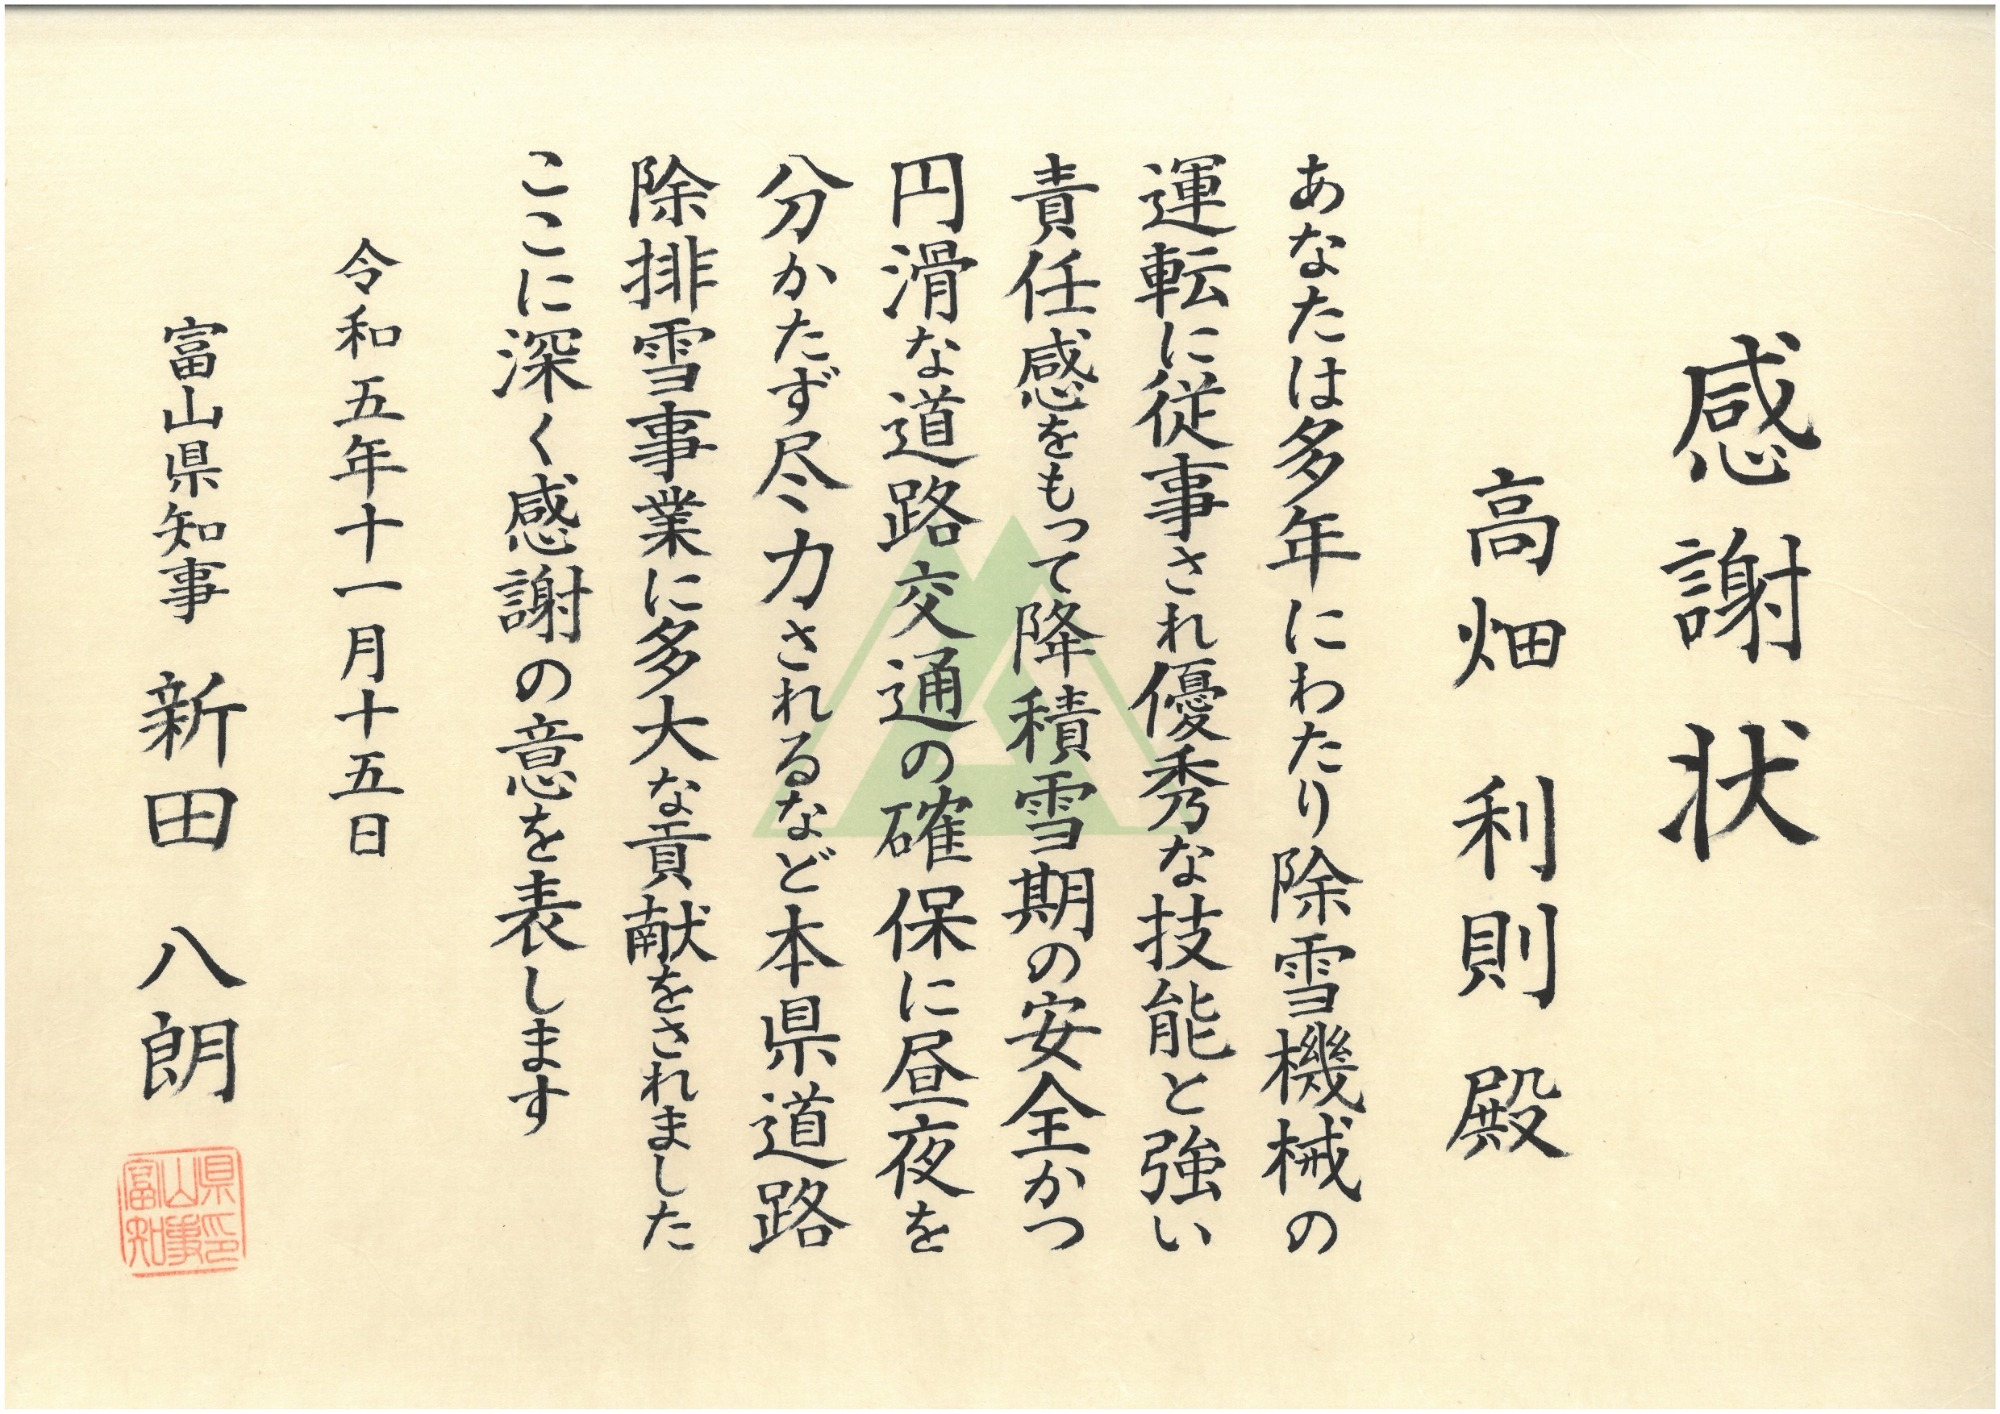 感謝状
高畑 利則 殿
あなたは多年にわたり除雪機械の
運転に従事され優秀な技能と強い
責任感をもって降積雪期の安全かつ
円滑な道路交通の確保に昼夜を
分かたず尽力されるなど本県道路
除排雪事業に多大な貢献をされました
ここに深く感謝の意を表します
令和五年十一月十五日
富山県知事 新田 八朗
富山県
知事印